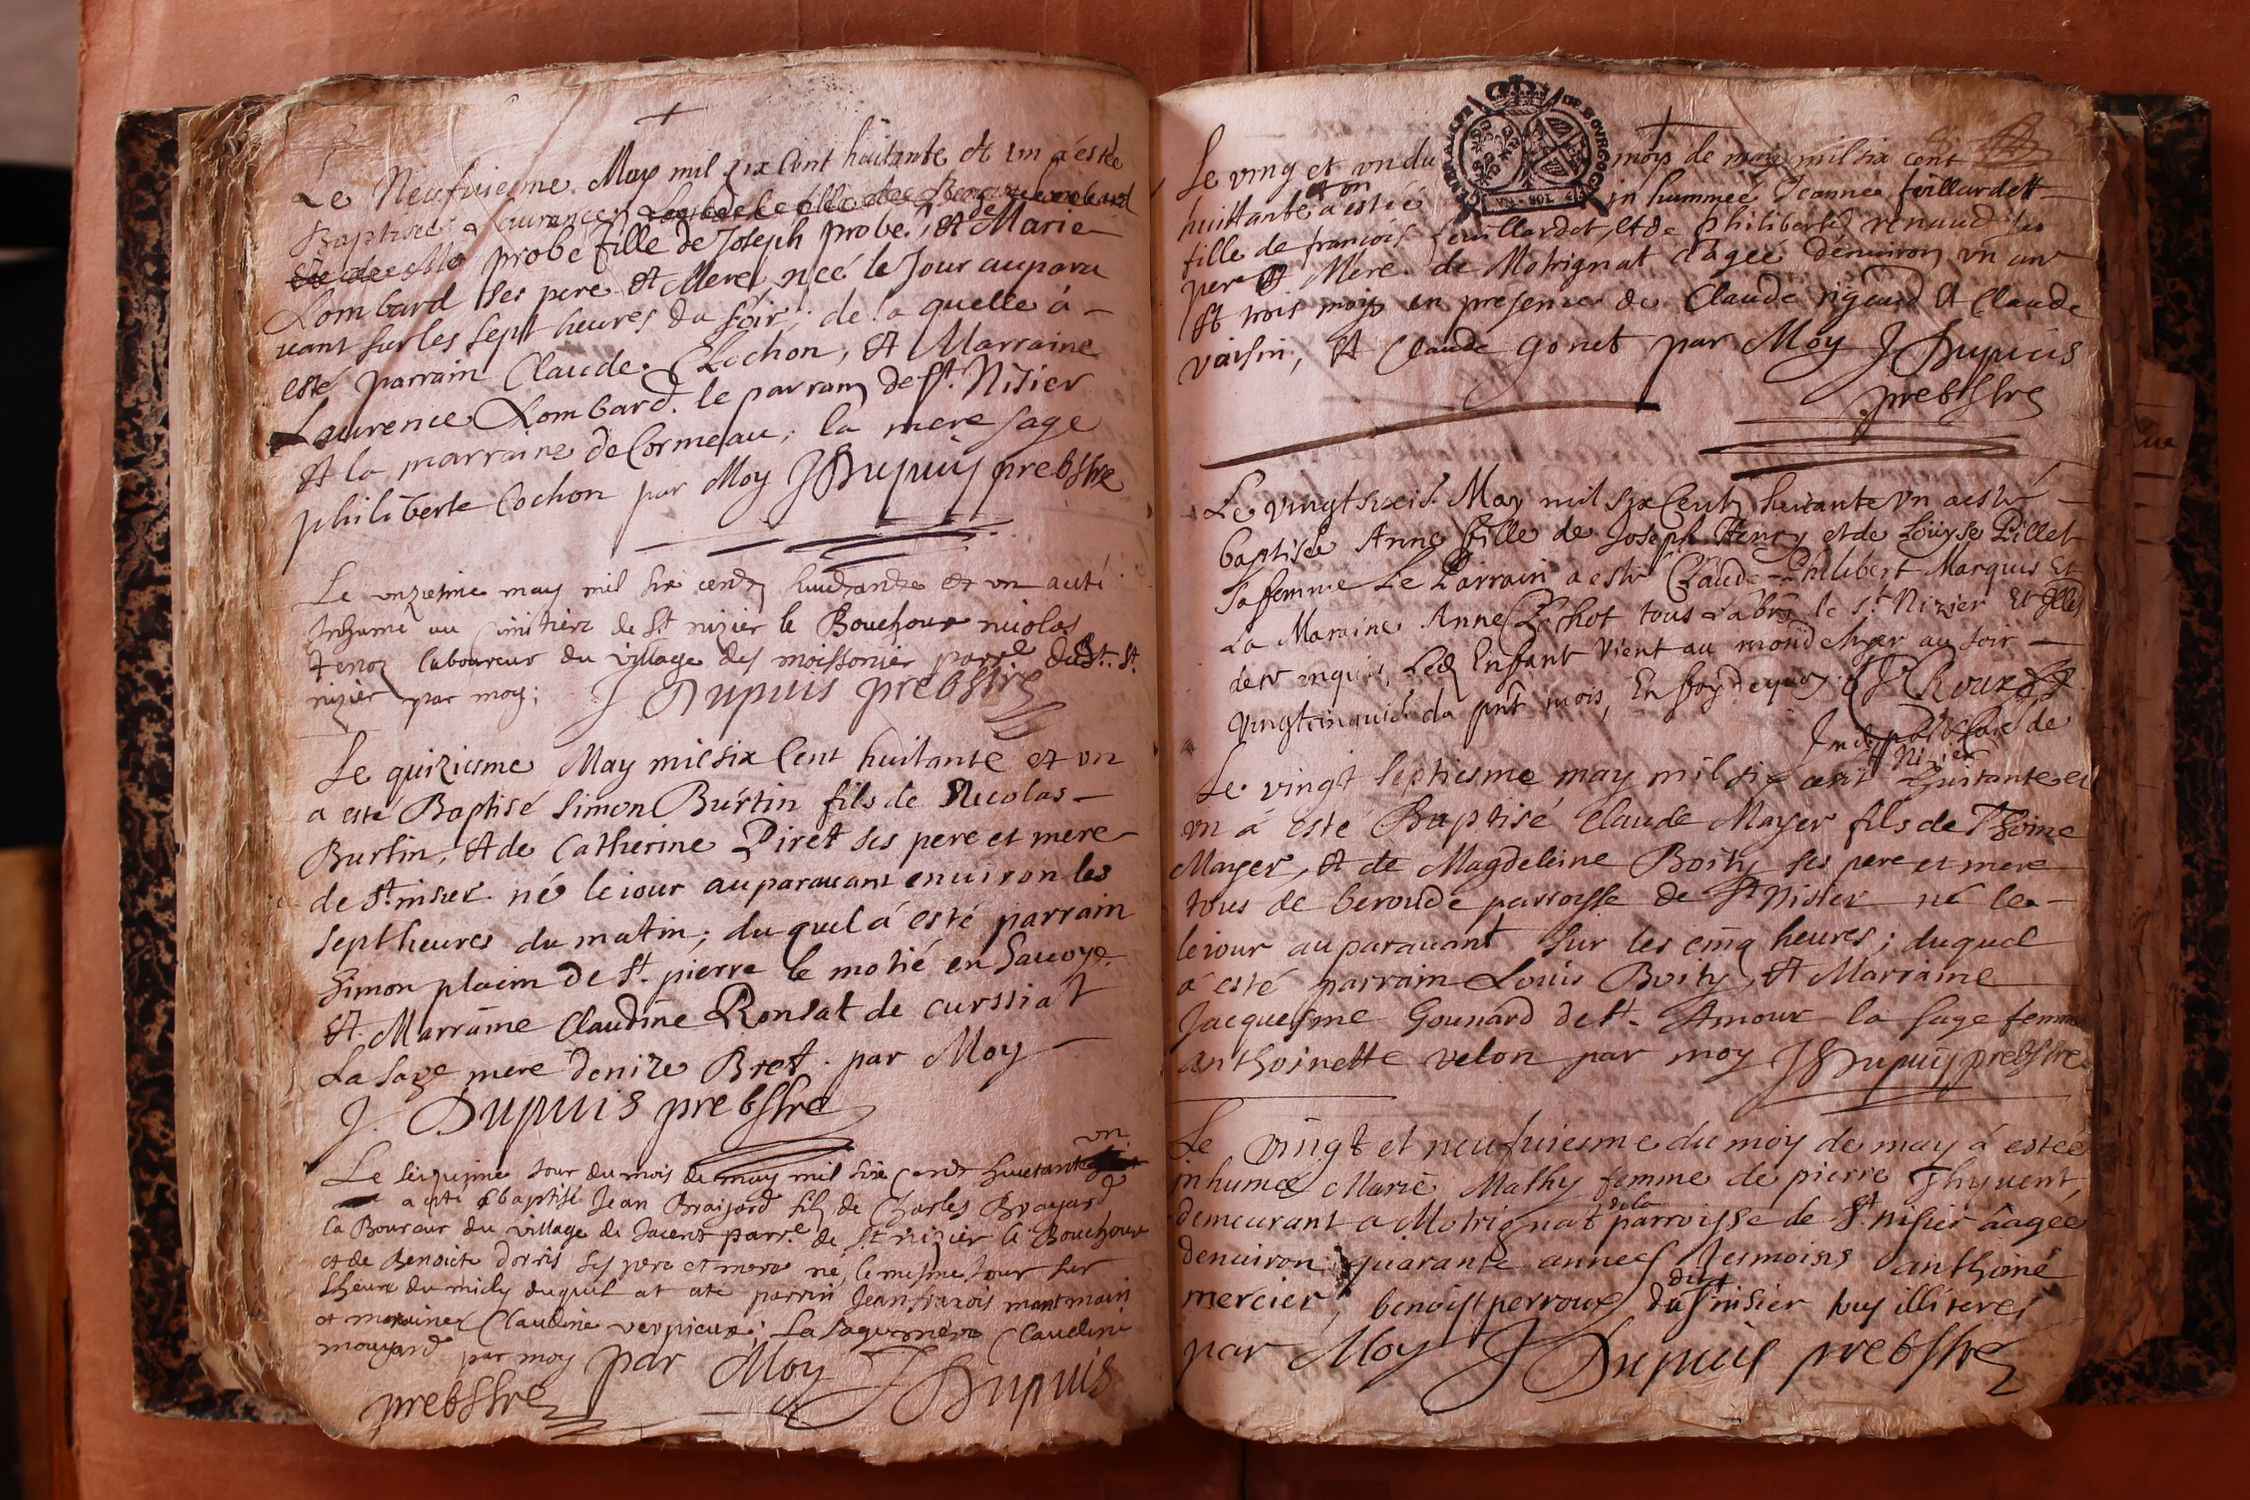 Le Neufuiesme May mil six Cent huitante et un a estée
Baptisée Laurence
probe fille de Joseph probe, et de Marie
Lombard ses pere et Mere, neé le Jour auparu
uant sur les sept heures du soir; de la quelle á
esté parrain Claude Cochon, et Marraine
Laurence Lombard. le parrain de st. Nisier
et la marraine de Cormeau; la mere sage
philiberte Cochon par Moy J Dupuis prebstre
Le unziesme may mil six centz huictante et un a eté
Inhumé au Cimitiere de st nizier le Bouchoux nicolas
laboureur du village des moissonier parr.e dud st.
nizier par moy; J Dupuis prebstre
Le quiziesme May mil six Cent huitante et un
a esté Baptisé Simon Burtin fils de Nicolas
Burtin, et de Catherine Piret ses pere et mere
de st. nisier né le iour auparauant enuiron les
sept heures du matin; du quel á esté parrain
Simon plaim de st. pierre le motié en Sauoye
et Marraine Claudine Ronsat de curssiat
La sage mere denize Bret. par Moy
J. Dupuis prebstre
un
Le seizisme Jour du mois de may mil six Cent huictante
a esté baptisé Jean Braijard filz de Charles Brayard
la Boureur du village de parr.e de st nizier le Bouchoux
et de Benoicte dorris ses pere et mere né le mesme Jour sur
Lheure du midy duquel at ete parrin Jean francois montmain
et maraine Claudine verpieux; La sage mere Claudine
mouyard par moy par Moy J Dupuis
prebstre
GENERALITE DE BOURGOGNE
Le ving et un du mois de may mil six cent
huittante et un a estéé in hummeé Jeanne feillardett
fille de francois feuillardet, et de philiberte renaud ses
per et Mere de Motrignat aageé denuiron un an
et trois mois en presence de Claude rigaud et Claude
voisin, et Claude gonet par Moy J Dupuis
prebstre
Le vingt sixie. May mil six Cent huitante un a esté
baptisée Anne fille de Joseph et de Louyse Pillet
sa femme Le Parrain a esté Claude Philibert Marquis et
La Maraine Anne Cochot tous le st. Nizier
enquis, Led Enfant Vient au monde hyer au soir
vingtcinquie. du pnt mois, En foy de quoy J Roux
de
Nizier
Le vingt septiesme may mil six cent huitante et
un á esté Baptisé Claude Mayer fils de Thoine
Mayer, et de Magdeleine Boity ses pere et mere
tous de beroude parroisse de st Nisier né le
le iour auparauant sur les cinq heures; duquel
á esté parrain Louis Boity, et Marraine
Jacquesme Gounard de st. Amour la sage femme
anthoinette velon par moy J Dupuis prebstre
Le vingt et neufuiesme du moy de may á estée
inhumée Marie Mathy femme de pierre Thyuent,
demeurant a Motrignat parroisse de st. nisier áagée
denuiron quarante années tesmoins anthoine
mercier, benoist perroux du st nisier tous illiteres
par Moy J Dupuis prebstre